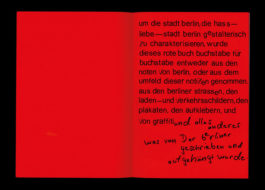 um die stadt berlin, die hass–
liebe–stadt berlin gestalterisch
zu charakterisieren, wurde
dieses rote buch buchstabe für
buchstabe entweder aus den
noten von berlin, oder aus dem
umfeld dieser notizen genommen.
aus den berliner strassen, den
laden–und verkehrsschildern, den
plakaten, den aufklebern, und
von graffiti und alles anderes
was von Der Berliner
geschrieben und
aufgehängt wurde